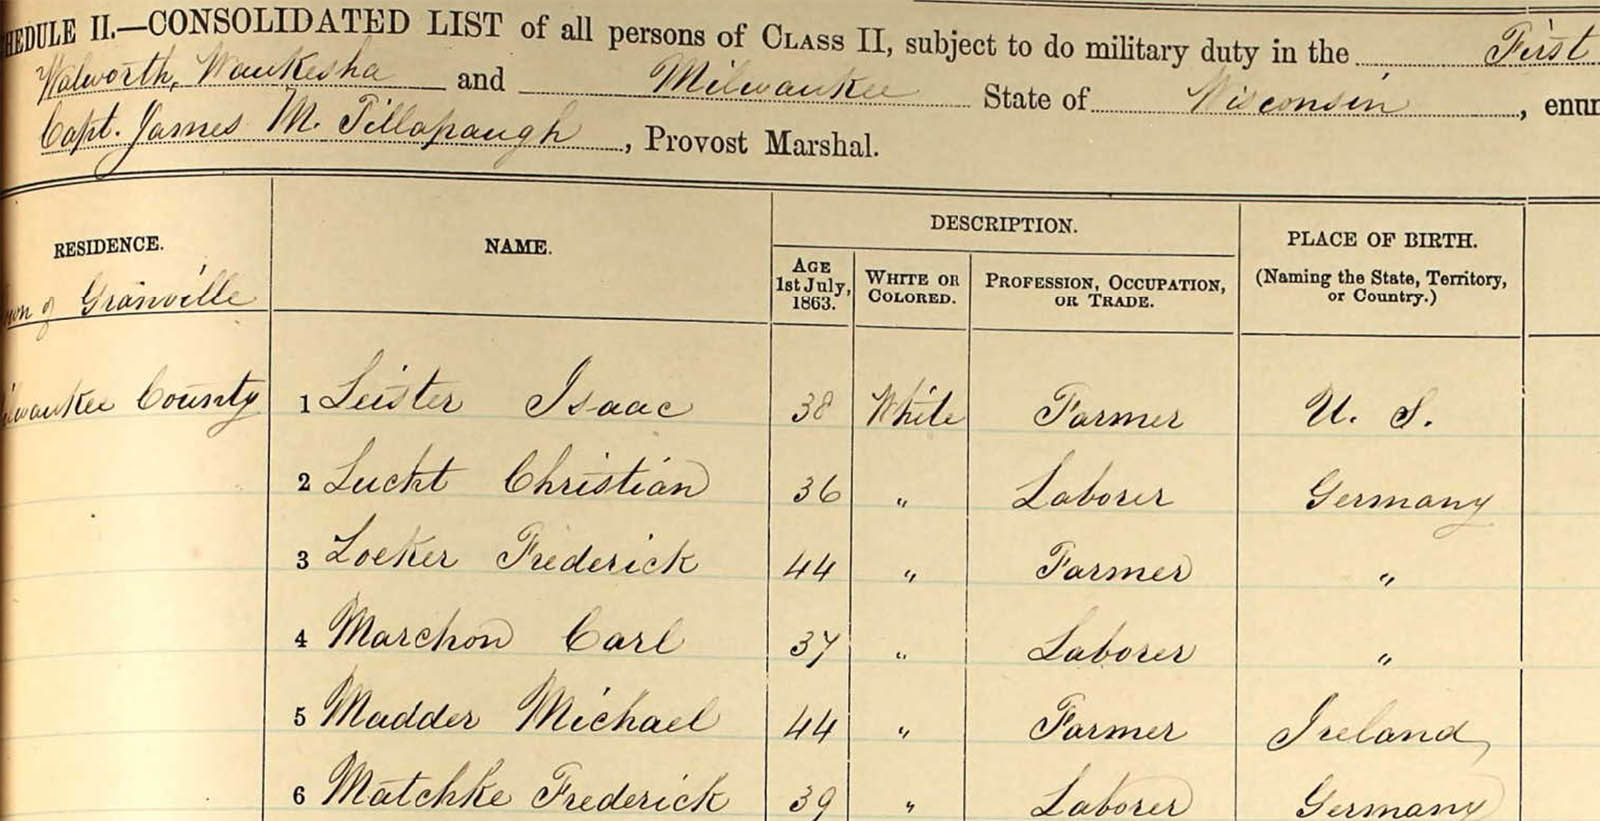 HEDULE II.—CONSOLIDATED LIST of all persons of CLASS II, subject to do military duty in the First
Walworth, Waukesha and Milwaukee State of Wisconsin, enu
Capt. James M. Tillapaugh, Provost Marshal.
RESIDENCE. NAME. DESCRIPTION. PLACE OF BIRTH.
(Naming the State, Territory, or Country.)
AGE 1st July, 1863. WHITE OR COLORED. PROFESSION, OCCUPATION, OR TRADE.
of Granville
waukee County 1 Leister Isaac 38 White Farmer U. S.
2 Lucht Christian 36 " Laborer Germany
3 Loeker Frederick 44 " Farmer "
4 Marchon Carl 37 " Laborer "
5 Madder Michael 44 " Farmer Ireland
6 Matchke Frederick 39 " Laborer Germany